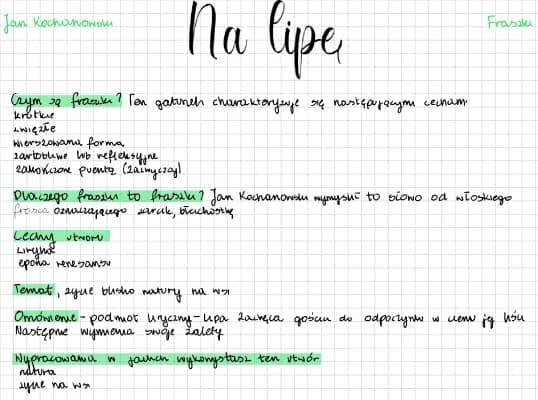 Jan Kochanowski
Fraszki
Na lipę
Czym są fraszki? Ten gatunek charakteryzuje się następującymi cechami
krótkie
zwięzłe
wierszowana forma
żartobliwe lub refleksyjne
zakończone puentą (zazwyczaj)
Dlaczego fraszki to fraszki? Jan Kochanowski wymyślił to słowo od włoskiego
frasca oznaczającego żarcik, błahostkę
Cechy utworu
Liryka
epoka renesansu
Temat, życie blisko natury na wsi
Omówienie - podmiot liryczny - lipa zachęca gości do odpoczynku w cieniu jej liści
Następnie wymienia swoje zalety
Wypracowania w jakich wykorzystasz ten utwór
natura
życie na wsi